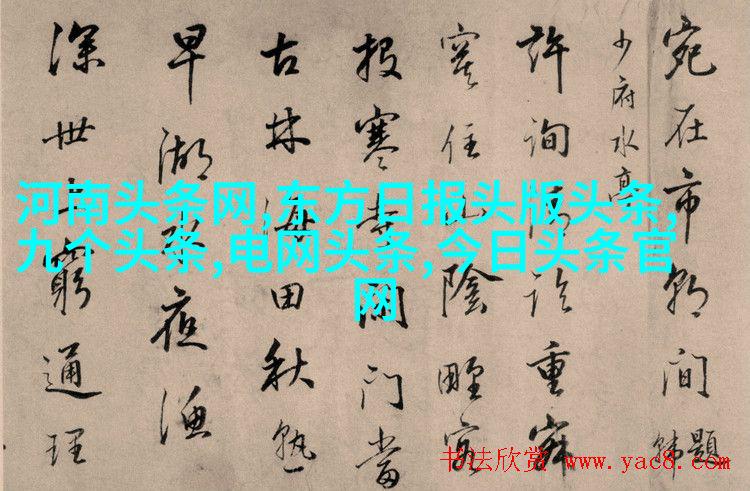 宛在市朝間
題韓
少府水亭
許詢重
住陰
寒門當
古林田秋熟
早湖夜漁
深世窮通理
河南头条网,东方日报头版头条,
九个头条,电网头条,今日头条官
网
书法欣赏 www.yac8.com